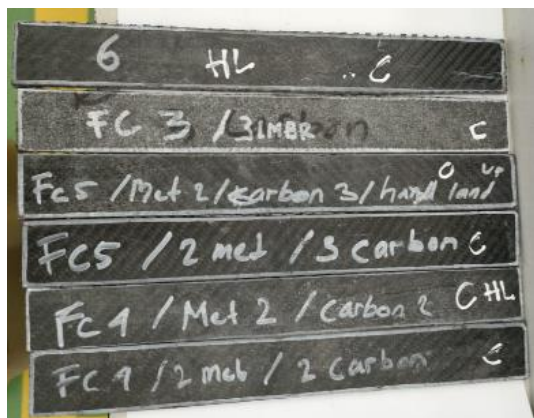 6 HL .. C
FC 3 / 3 C
Fc5 / Met 2 / carbon 3 / hand land O up
FC5 / 2 met / 3 carbon C
FC 1 / Met 2 / Carbon 2 C HL
FC 1 / 2 met / 2 Carbon C